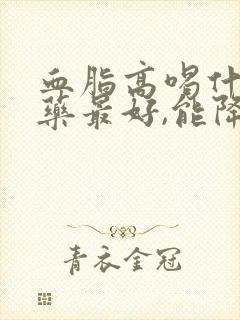 血脂高喝什
药最好,能降
青衣金冠